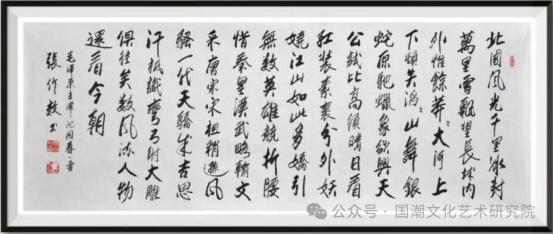 北國風光千里冰封
萬里雪飄望長城内
外惟餘莽々大河上
下頓失滔々山舞銀
蛇原馳蠟象欲與天
公試比高須晴日看
紅裝素裹分外妖
嬈江山如此多嬌引
無數英雄競折腰
惜秦皇漢武略輸文
采唐宗宋祖稍遜風
騷一代天驕成吉思
汗祇識彎弓射大雕
俱往矣數風流人物
還看今朝
毛澤東主席沁園春雪
張作
公众号·国潮文化艺术研究院